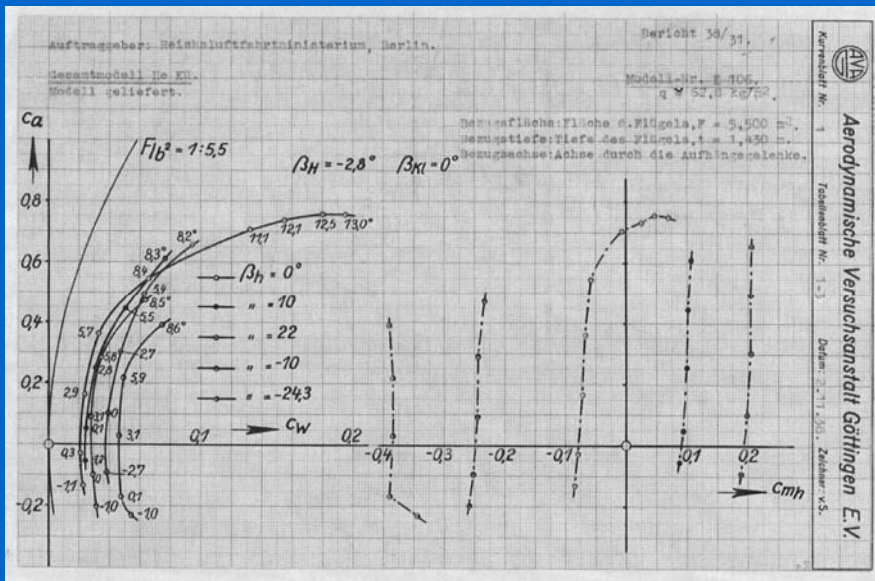 Auftraggeber: Reichsluftfahrtministerium, Berlin.
Bericht 38/31.
Gesamtmodell He
Modell geliefert.
Modell-Nr.
q = 62,8 kg/m².
Bezugsfläche: Fläche d. Flügels, F = 5,500 m².
Bezugstiefe: Tiefe des Flügels, t = 1,450 m.
Bezugsachse: Achse durch die Aufhängegelenke.
ca
F/b² = 1:5,5
βH = -2,8°
βKl = 0°
0,8
0,6
0,4
0,2
-0,2
8,2°
11,1
12,1
12,5
13,0°
8,3°
8,4
5,4
8,5°
5,5
5,7
8,6°
5,8
2,8
-2,7
5,9
2,9
0,1
0
3,1
0,3
-1,1
-2,7
0,1
-1,0
-1,0
βh = 0°
" = 10
" = 22
" = -10
" = -24,3
0,1
cW
0,2
-0,4
-0,3
-0,2
-0,1
0,1
0,2
cmh
AVA
Aerodynamische Versuchsanstalt Göttingen E.V.
Kurvenblatt Nr. 1
Tabellenblatt Nr. 1-3
Datum:
Zeichner: v.S.